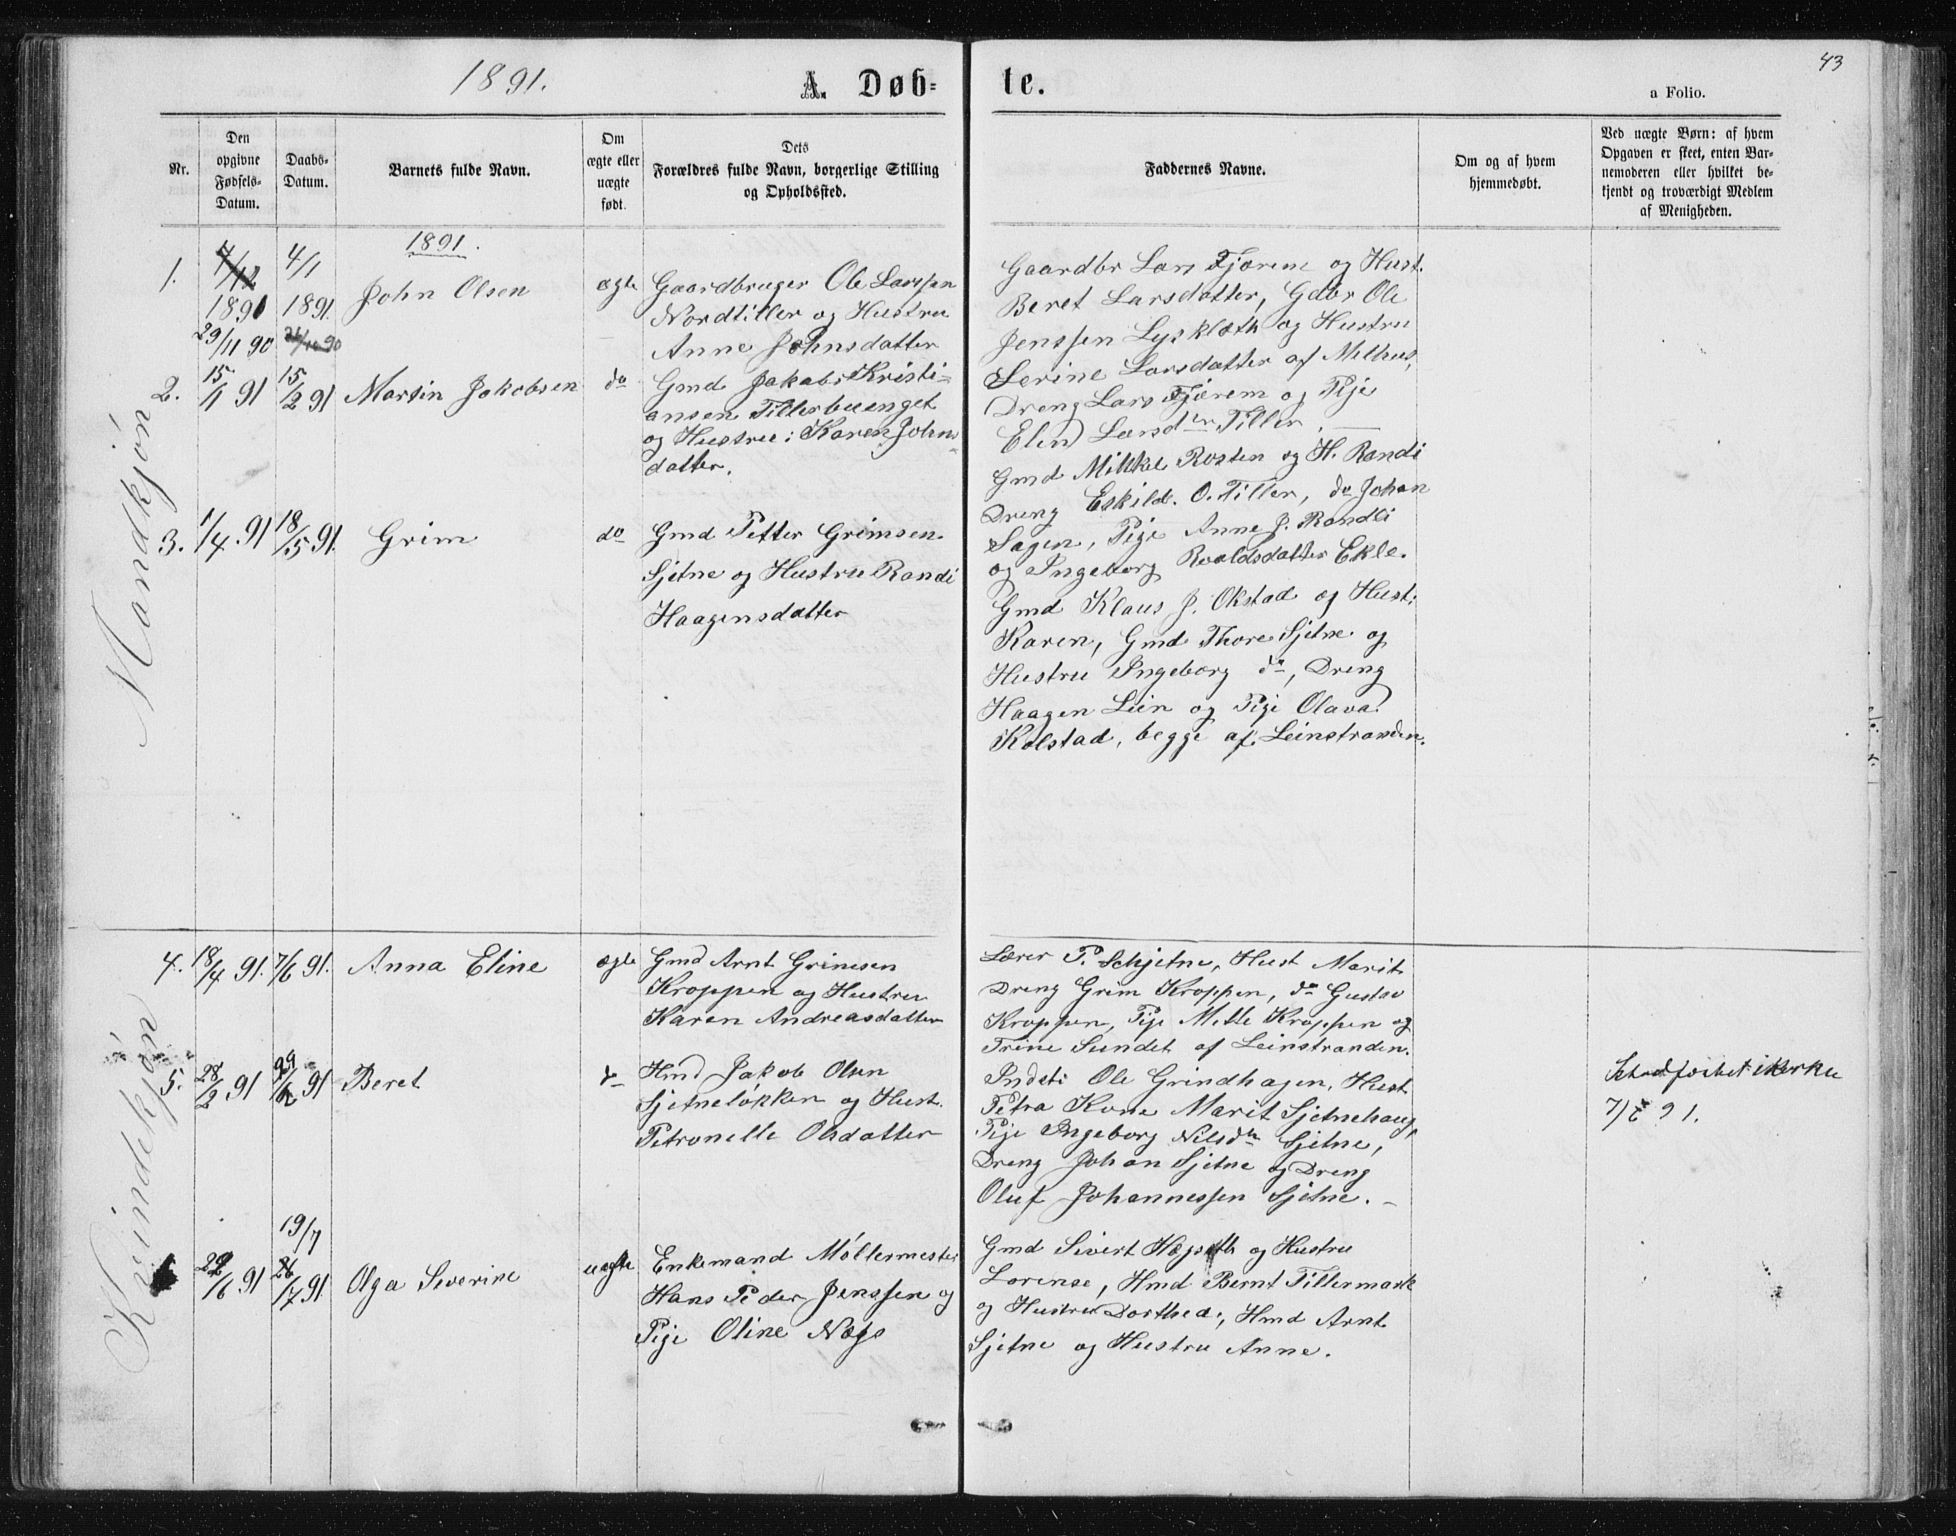 1891.
A. Døb-
te.
43
a Folio.
Nr.
Den
opgivne
Fødsels-
Datum.
Daabs-
Datum.
Barnets fulde Navn.
Om
ægte eller
uægte
født.
Dets
Forældres fulde Navn, borgerlige Stilling
og Opholdssted.
Faddernes Navne.
Om og af hvem
hjemmedøbt.
Ved uægte Børn: af hvem
Opgaven er skeet, enten Bar-
nemoderen eller hvilket be-
kjendt og troværdigt Medlem
af Menigheden.
Mandkjön
1891.
1.
1890
29/11 90
4/1
1891
John Olsen
ægte
Gaardbruger Ole Larssen
Nordtiller og Hustru
Anne Johnsdatter
Gaardbr Lars Tjærem og Hust.
Beret Larsdatter, Gdbr Ole
Jenssen Lysklæth og Hustru
Serine Larsdatter af Melhus,
Dreng Lars Tjærem og Pije
Elen Larsdtr Tiller.
2.
15/1 91
15/2 91
Martin Jakobsen
do
Gmd Jakob Kristi-
ansen Tillerbuenget
og Hustru: Karen Johns
datter.
Gmd Mikkel Rosten og H. Randi
Dreng Eskild O. Tiller, do Johan
Sagen, Pige Anne J. Rondli
og Ingeborg Roaldsdatter Ekle.
3.
1/4 91
18/5 91.
Grim
do
Gmd Petter Grimsen
Sjetne og Hustru Randi
Haagensdatter
Gmd Klaus J. Okstad og Hust:
Karen, Gmd Thore Sjetne og
Hustru Ingeborg do, Dreng
Haagen Lien og Pige Olava
Kolstad, begge af Leinstranden.
Kvindekjön
4.
18/4 91.
7/6 91.
Anna Eline
ægte
Gmd Arnt Grimsen
Kroppen og Hustru
Karen Andreasdatter
Lærer P. Schjetne, Hust Marit
Dreng Grim Kroppen, do Gustav
Kroppen, Pije Mette Kroppen og
Trine Sundet af Leinstranden.
5.
28/2 91
91
Beret
Hmd Jakob Olsen
Sjetneløkken og Hust.
Petronelle Olsdatter
Indst: Ole Grindhagen, Hust
Petra Kone Marit Sjetnehaug,
Pije Ingeborg Nilsdtr Sjetne,
Dreng Johan Sjetne og Dreng
Oluf Johannessen Sjetne.
Stadfæstet i Kirken
7/6 91.
/6 91
19/7
/7 91
Olga Severine
uægte
Enkemand Møllermester
Hans Peder Jenssen og
Pije Oline Næss
Gmd Sivert Hæpseth og Hustru
Lorense, Hmd Bernt Tillermark
og Hustru Dorthea, Hmd Arnt
Sjetne og Hustru Anne.